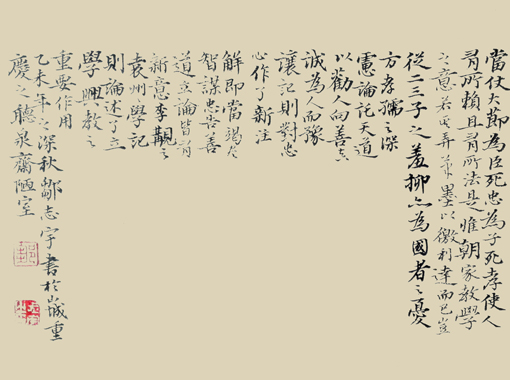 當仗大節為臣死忠為子死孝使人
有所賴且有所法是惟朝家教學
之意若其弄筆墨以徼利達而已豈
從二三子之羞抑亦為國者之憂
方孝孺之深
慮論託天道
以勸人向善真
誠為人而豫
讓記則對忠
心作了新注
解即當竭
智謀忠告善
道立論皆有
新意李覯之
袁州學記
則論述了立
學興教之
重要作用
乙未年之深秋鄒志宇書於山城重
慶之聽泉齋陋室